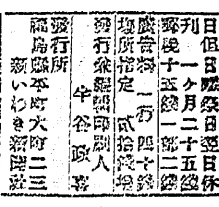 日但祭日翌日
刊一ヶ月二十五錢
郵税十五錢一部一
廣告料一行四十錢
場所指定貳拾錢增
發行兼編輯印刷人
半谷政喜
發行所
福島縣本町大町二三
新いわき新聞社